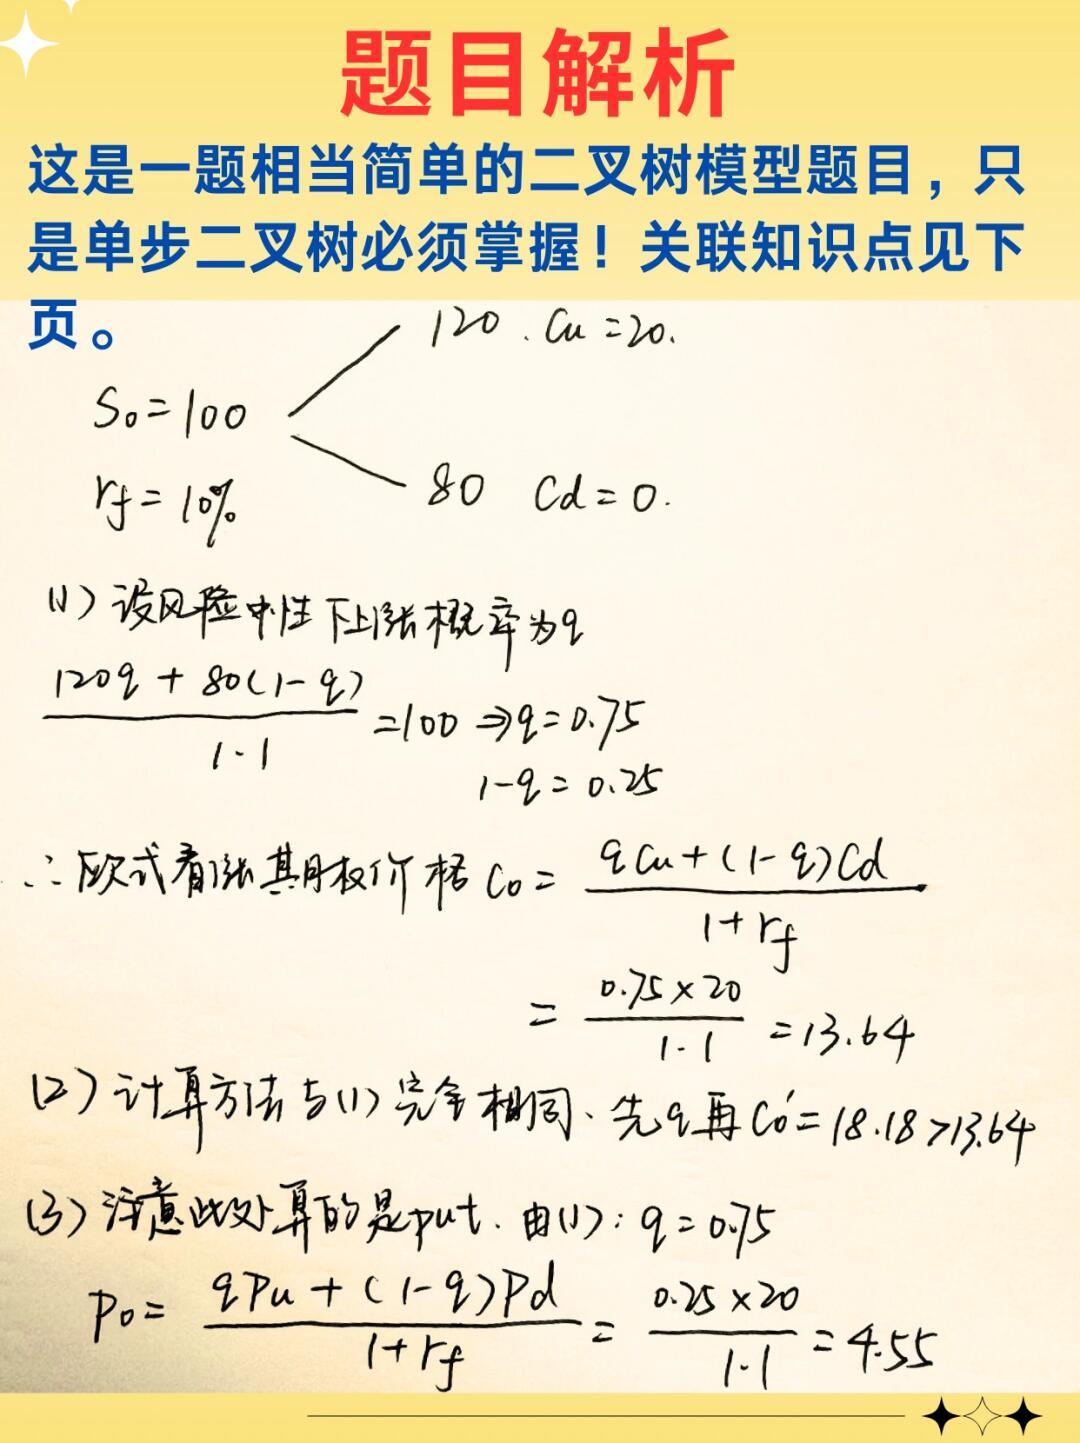 题目解析
这是一题相当简单的二叉树模型题目，只
是单步二叉树必须掌握！关联知识点见下
页。
120 . Cu = 20.
S₀ = 100
80 Cd = 0.
rf = 10%
(1) 设风险中性下上涨概率为q
120q + 80(1-q) / 1.1 = 100 ⇒ q = 0.75
1-q = 0.25
∴ 欧式看涨期权价格 C₀ = qCu + (1-q)Cd / 1+rf
= 0.75×20 / 1.1 = 13.64
(2) 计算方法与(1)完全相同、先q再C₀' = 18.18 > 13.64
(3) 注意此处算的是put. 由(1): q = 0.75
P₀ = qPu + (1-q)Pd / 1+rf = 0.25×20 / 1.1 = 4.55